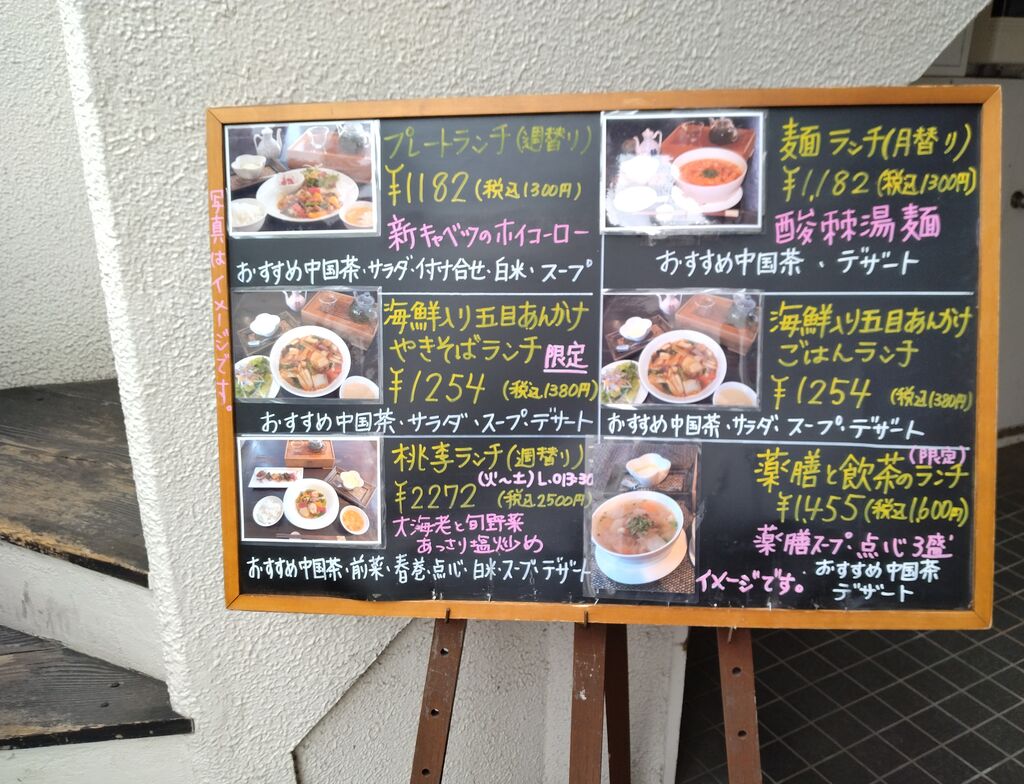 写真はイメージです。
プレートランチ(週替り)
¥1182(税込1300円)
新キャベツのホイコーロー
おすすめ中国茶・サラダ・付け合せ・白米・スープ
麺ランチ(月替り)
¥1,182(税込1300円)
酸棘湯麺
おすすめ中国茶・デザート
海鮮入り五目あんかけ
やきそばランチ 限定
¥1254(税込1380円)
おすすめ中国茶・サラダ・スープ・デザート
海鮮入り五目あんかけ
ごはんランチ
¥1254(税込1380円)
おすすめ中国茶・サラダ・スープ・デザート
桃李ランチ(週替り)
(火〜土)L.O13:30
¥2272(税込2500円)
大海老と旬野菜
あっさり塩炒め
おすすめ中国茶・前菜・春巻・点心・白米・スープ・デザート
(限定)
薬膳と飲茶のランチ
¥1,455(税込1,600円)
薬膳スープ・点心3盛
おすすめ中国茶
デザート
イメージです。